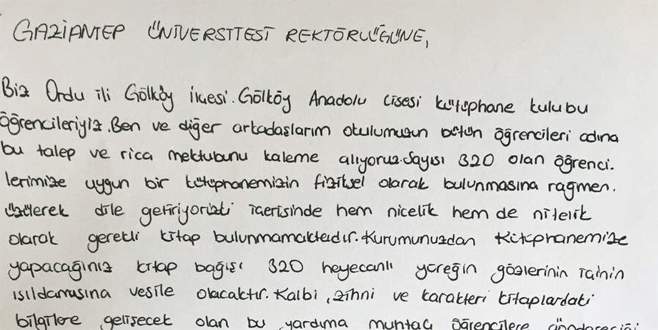 GAZİANTEP ÜNİVERSİTESİ REKTÖRLÜĞÜNE,
Biz Ordu ili Gölköy ilçesi. Gölköy Anadolu Lisesi kütüphane kulubu
öğrencileriyiz. Ben ve diğer arkadaşlarım okulumuzun bütün öğrencileri adına
bu talep ve rica mektubunu kaleme alıyoruz. Sayısı 320 olan öğrenci.
lerimize uygun bir kütüphanemizin fiziksel olarak bulunmasına rağmen.
üzülerek dile getiriyoruzki içerisinde hem nicelik hem de nitelik
olarak gerekli kitap bulunmamaktadır. Kurumunuzdan kütüphanemize
yapacağınız kitap bağışı 320 heyecanlı yüreğin gözlerinin içinin
ışıldamasına vesile olacaktır. Kalbi, zihni ve karakteri kitaplardaki
bilgilere gelişecek olan bu yardıma muhtaç öğrencilere